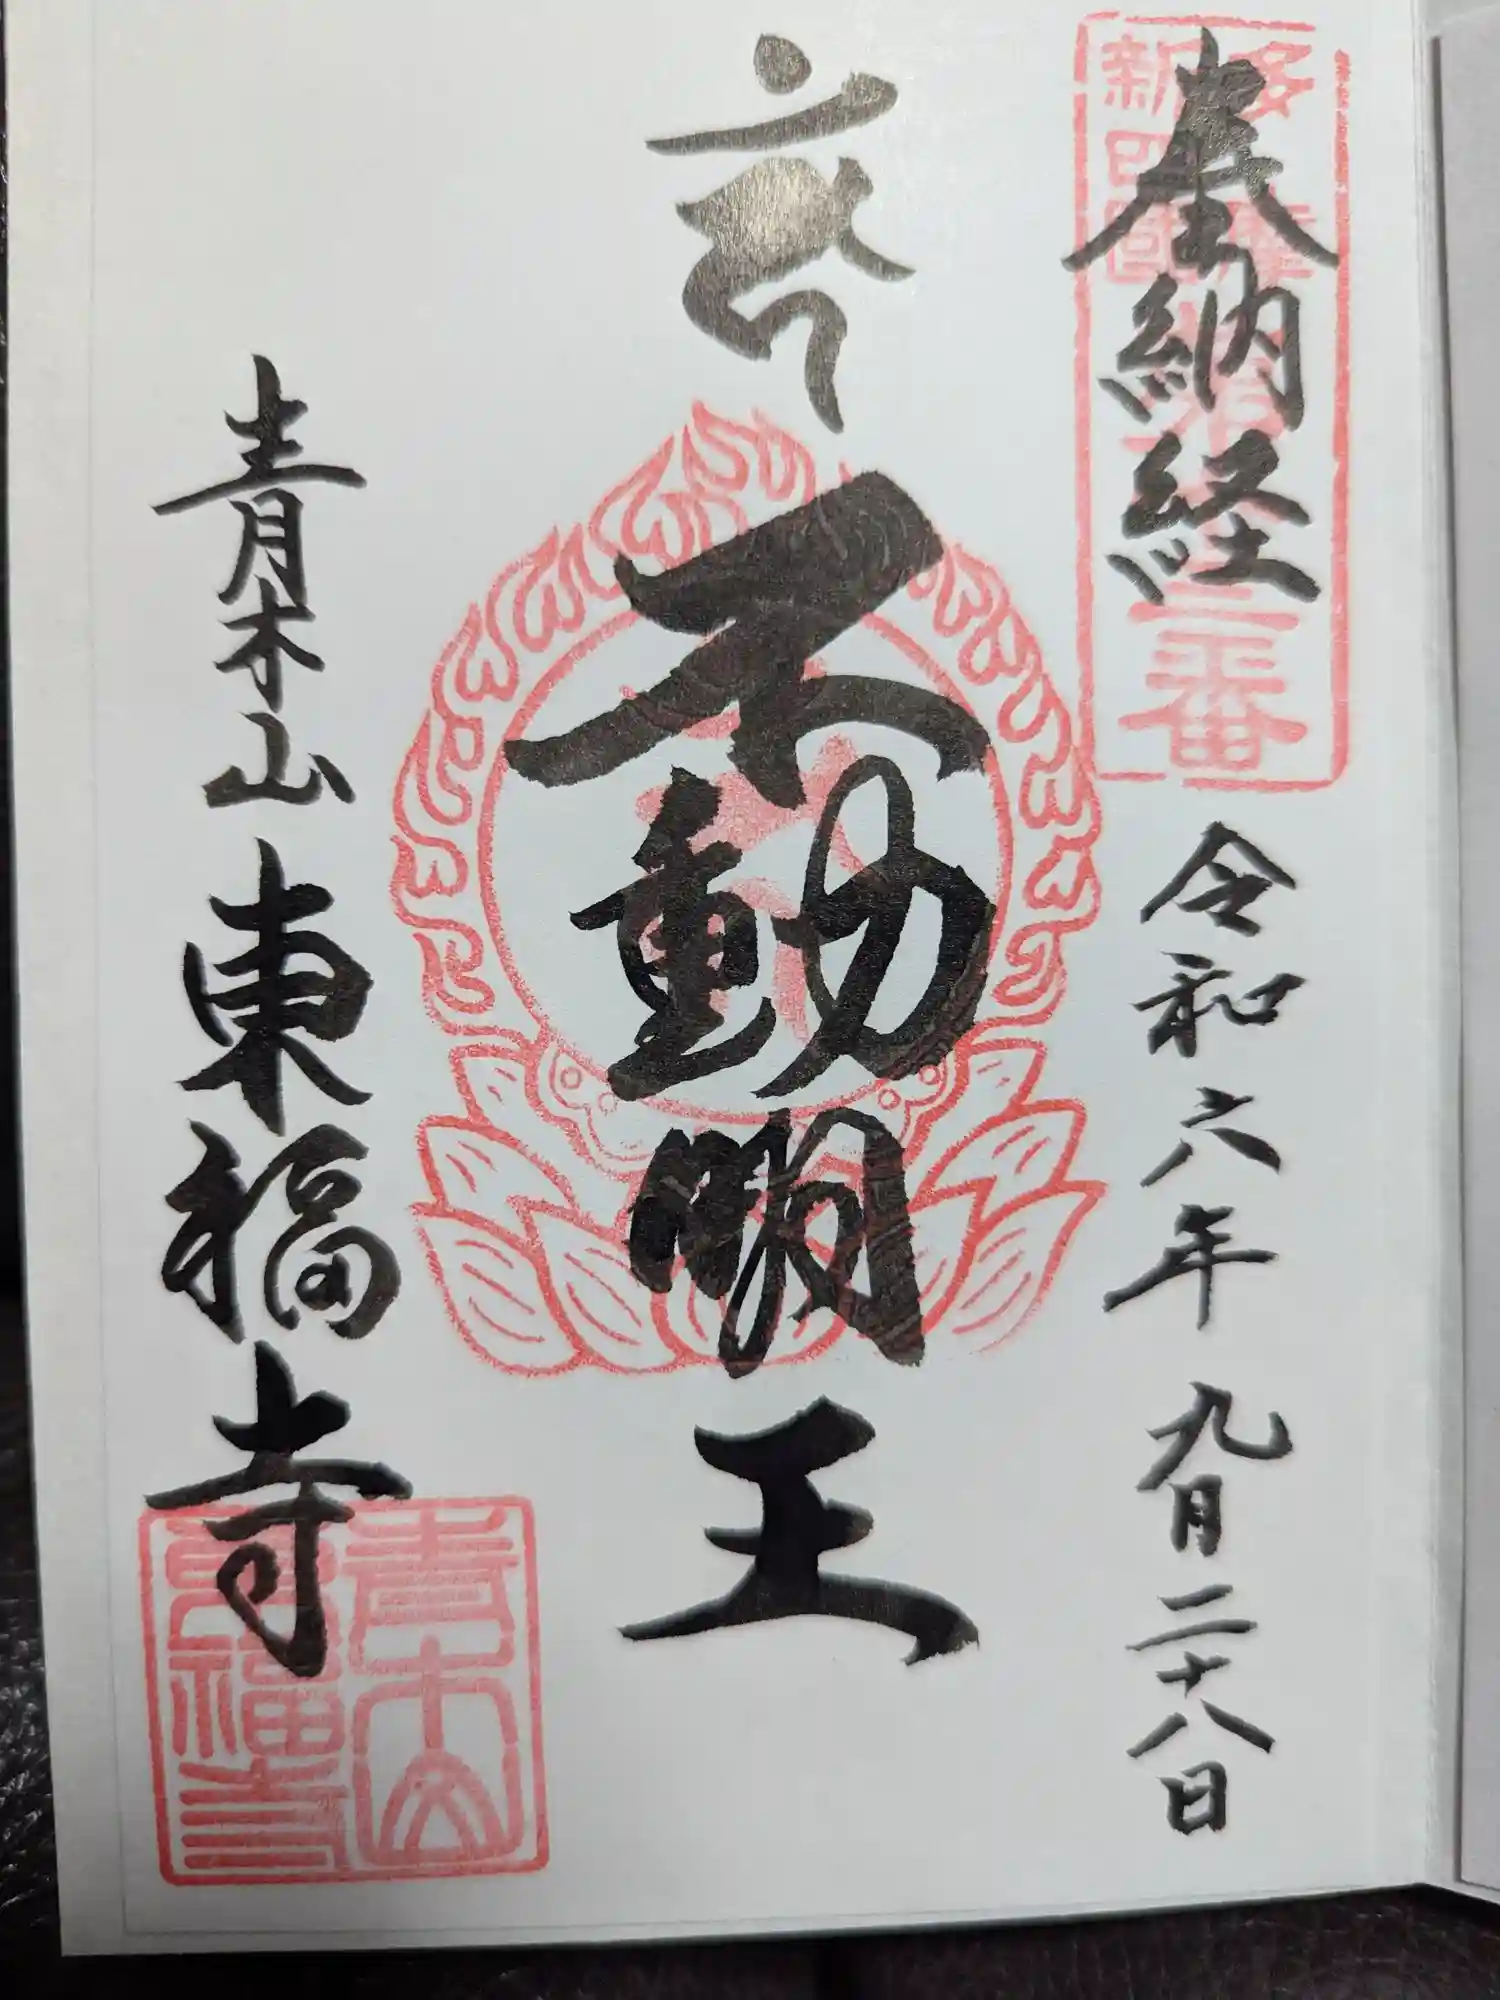 奉納経
多摩
新四国
第
三番
令和六年九月二十八日
不動明王
青木山東福寺
青木山
東福寺